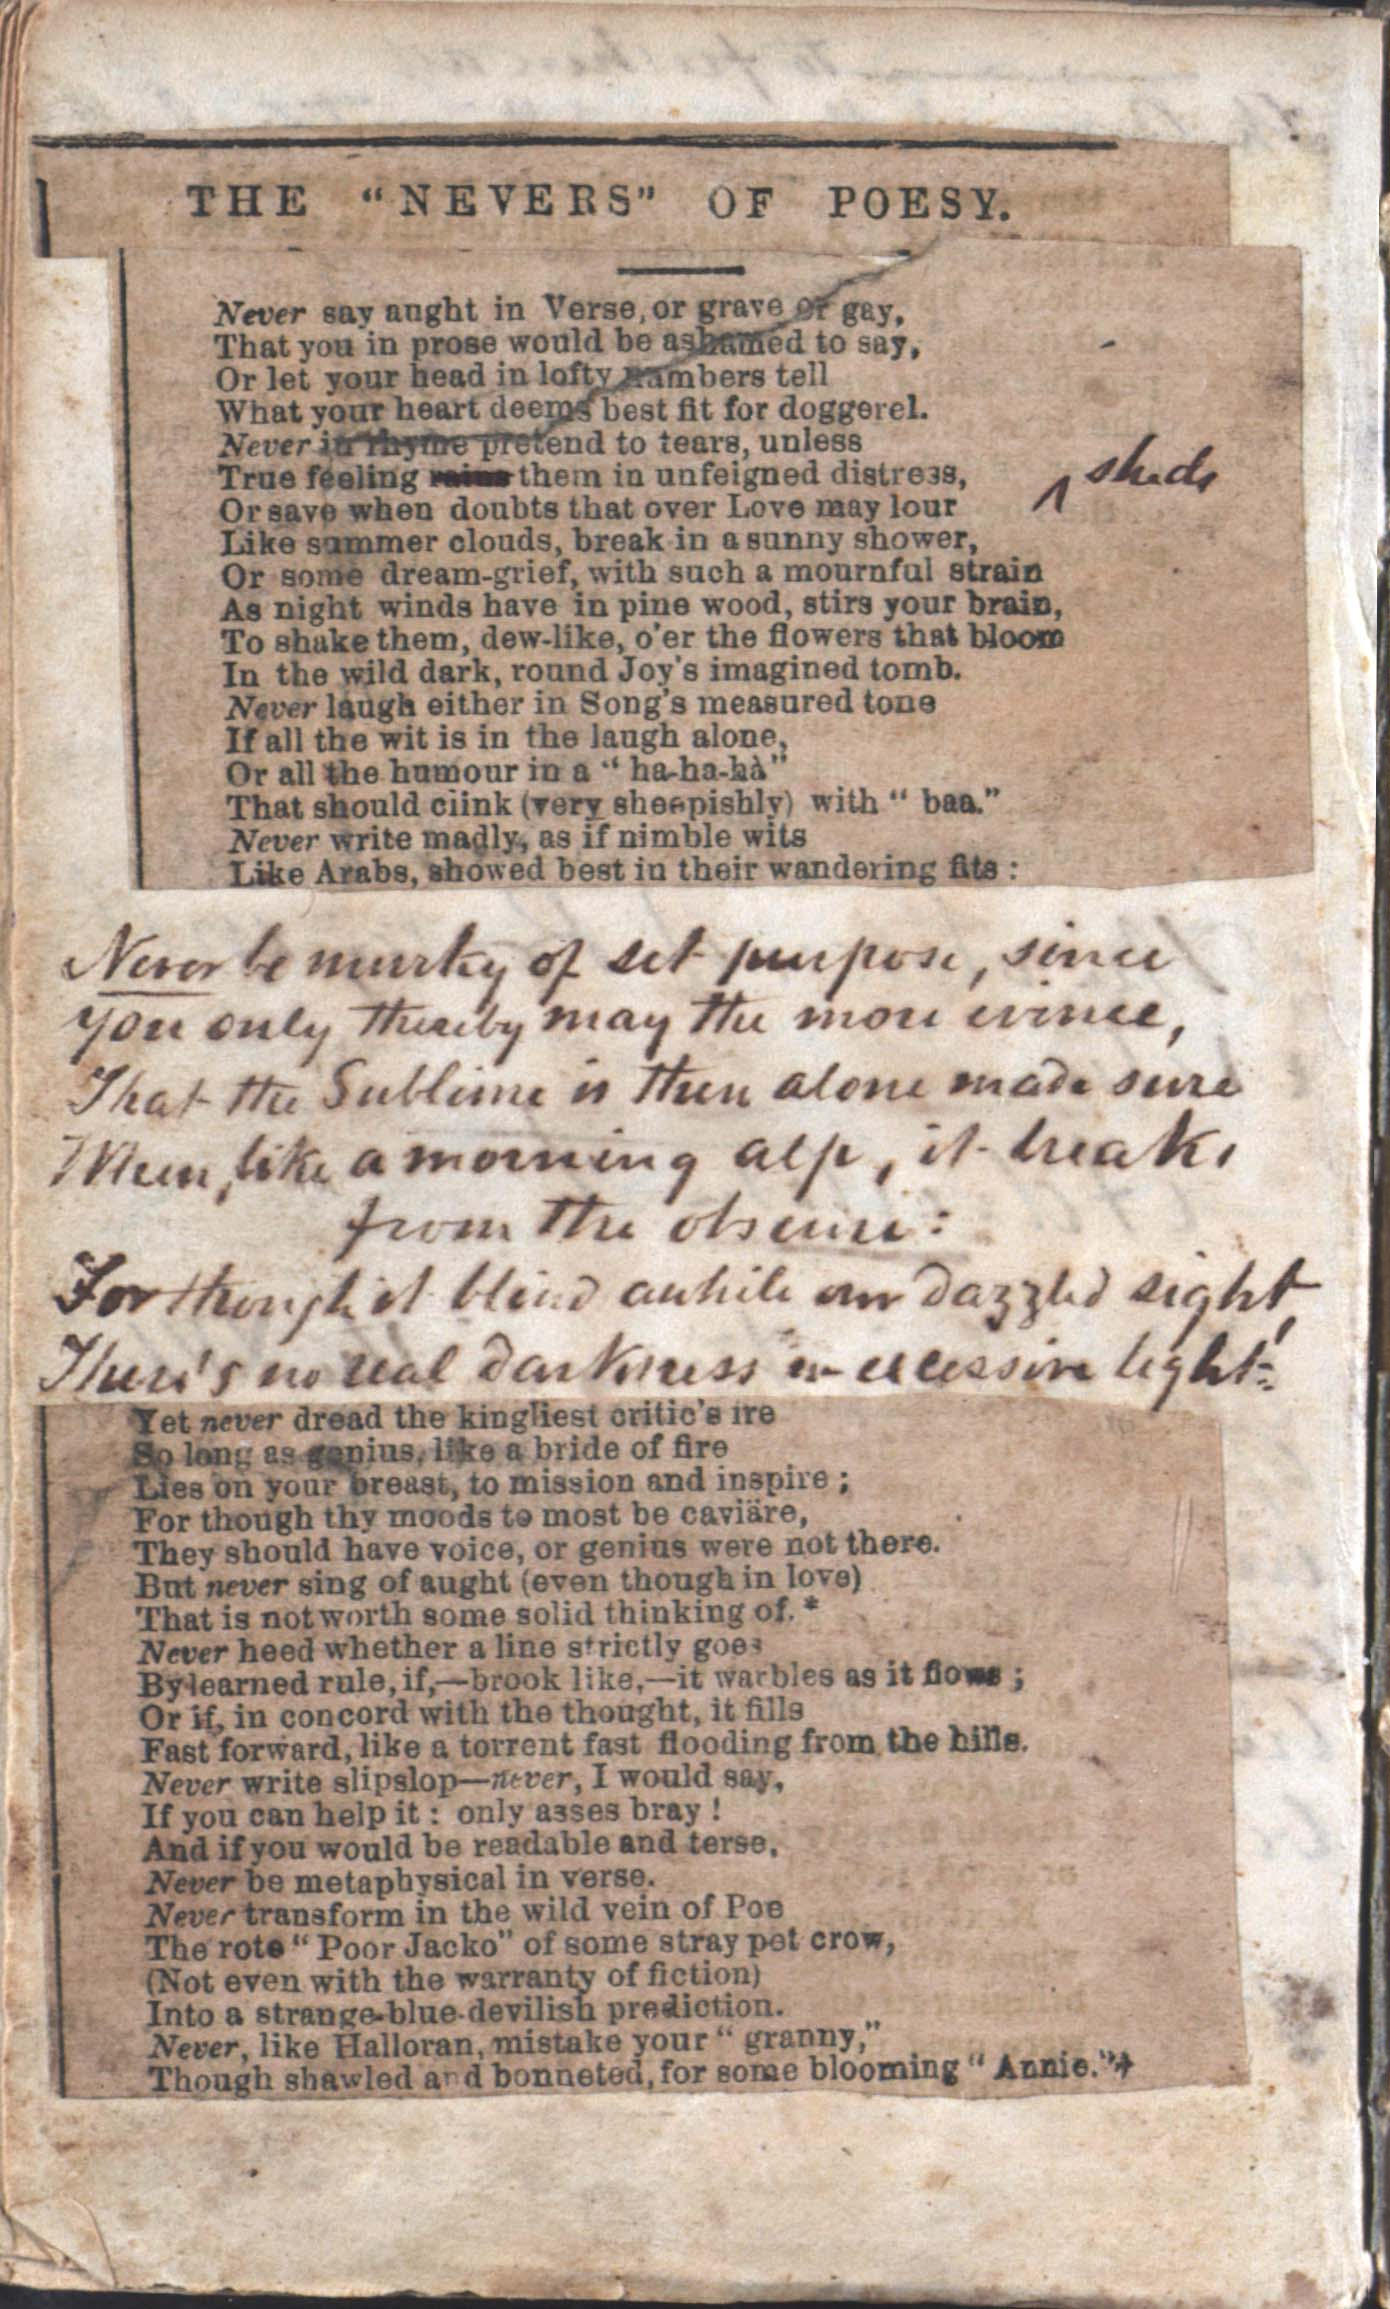 THE "NEVERS" OF POESY.
Never say aught in Verse, or grave or gay,
That you in prose would be ashamed to say,
Or let your head in lofty numbers tell
What your heart deems best fit for doggerel.
Never in rhyme pretend to tears, unless
True feeling rains them in unfeigned distress,
^ sheds
Or save when doubts that over Love may lour
Like summer clouds, break in a sunny shower,
Or some dream-grief, with such a mournful strain
As night winds have in pine wood, stirs your brain,
To shake them, dew-like, o'er the flowers that bloom
In the wild dark, round Joy's imagined tomb.
Never laugh either in Song's measured tone
If all the wit is in the laugh alone,
Or all the humour in a "ha-ha-hà"
That should clink (very sheepishly) with "baa."
Never write madly, as if nimble wits
Like Arabs, showed best in their wandering fits:
Never be murky of set purpose, since
You only thereby may the more evince,
That the Sublime is then alone made sure
When, like a morning alp, it breaks
from the obscure:
For though it blind awhile our dazzled sight,
There's no real darkness in excessive light:
Yet never dread the kingliest critic's ire
So long as genius, like a bride of fire
Lies on your breast, to mission and inspire;
For though thy moods to most be caviäre,
They should have voice, or genius were not there.
But never sing of aught (even though in love)
That is not worth some solid thinking of.*
Never heed whether a line strictly goes
By learned rule, if,—brook like,—it warbles as it flows;
Or if, in concord with the thought, it fills
Fast forward, like a torrent fast flooding from the hills.
Never write slipslop—never, I would say,
If you can help it: only asses bray!
And if you would be readable and terse,
Never be metaphysical in verse.
Never transform in the wild vein of Poe
The rote "Poor Jacko" of some stray pet crow,
(Not even with the warranty of fiction)
Into a strange-blue-devilish prediction.
Never, like Halloran, mistake your "granny,"
Though shawled and bonneted, for some blooming "Annie."†